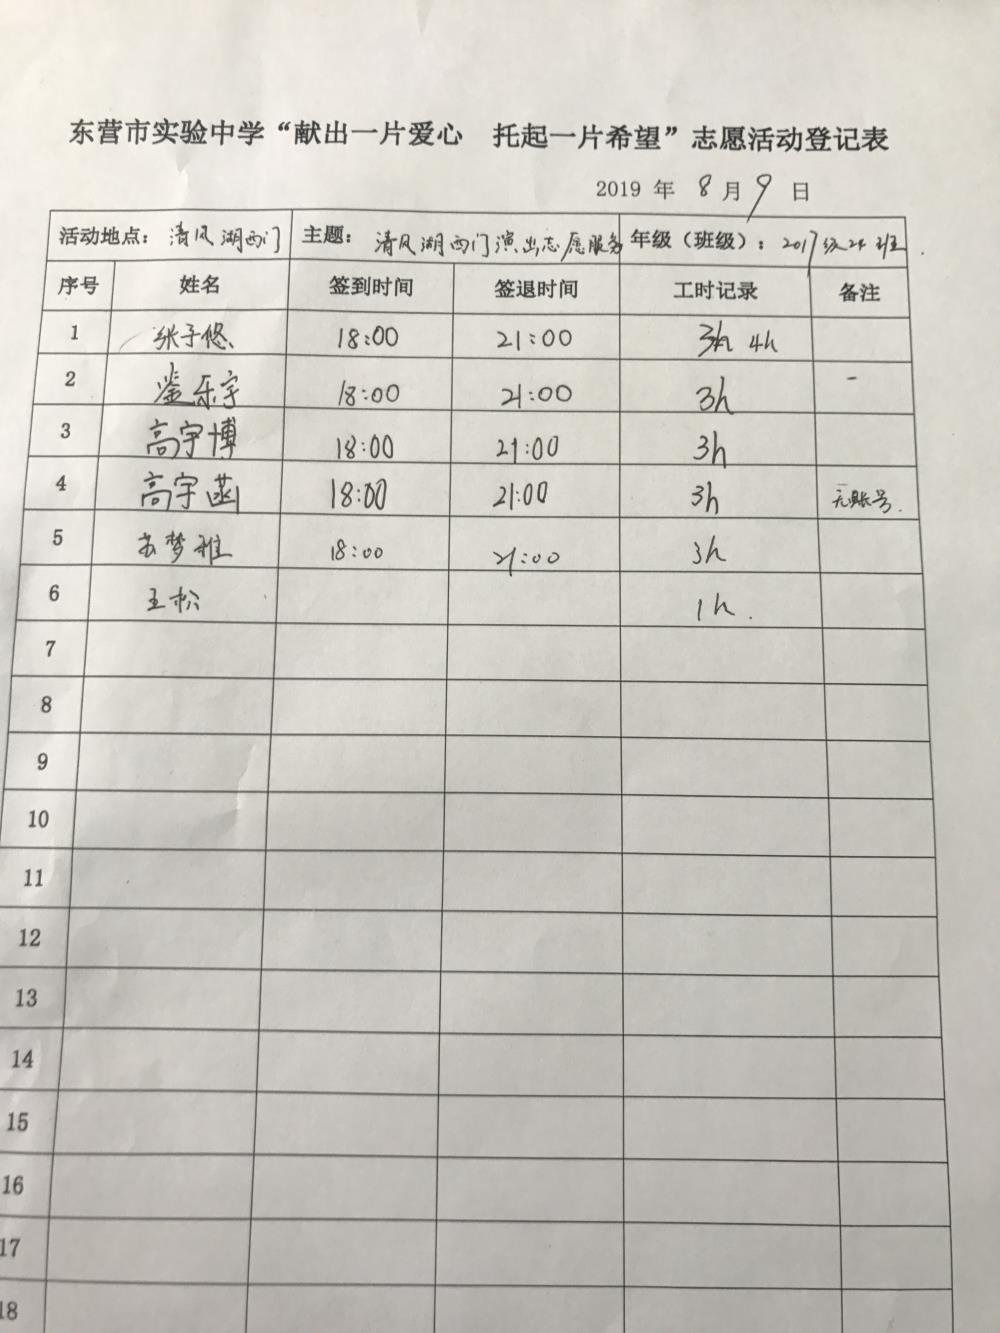 东营市实验中学“献出一片爱心 托起一片希望”志愿活动登记表
2019 年 8 月 9 日
活动地点：清风湖西门 主题：清风湖西门演出志愿服务 年级（班级）：2017级24班
序号 姓名 签到时间 签退时间 工时记录 备注
1 张子悠 18:00 21:00 4h
2 乐宇 18:00 21:00 3h
3 高宇博 18:00 21:00 3h
4 高宇菡 18:00 21:00 3h 无账号.
5 苏梦雅 18:00 21:00 3h
6 王松 1h.
7
8
9
10
11
12
13
14
15
16
17
18